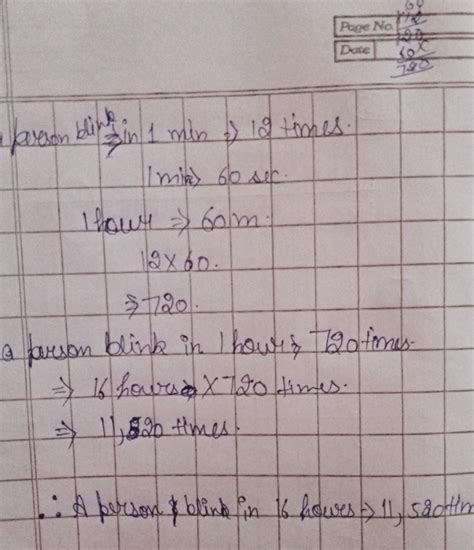 60
x12
120
60x
720
Page No.
Date
person blink in 1 min ⇒ 12 times.
1 min ⇒ 60 sec.
1 hour ⇒ 60 m.
12 x 60.
⇒ 720.
a person blink in 1 hour ⇒ 720 times.
⇒ 16 hours x 720 times.
⇒ 11,520 times.
∴ A person blink in 16 hours → 11,520 tim